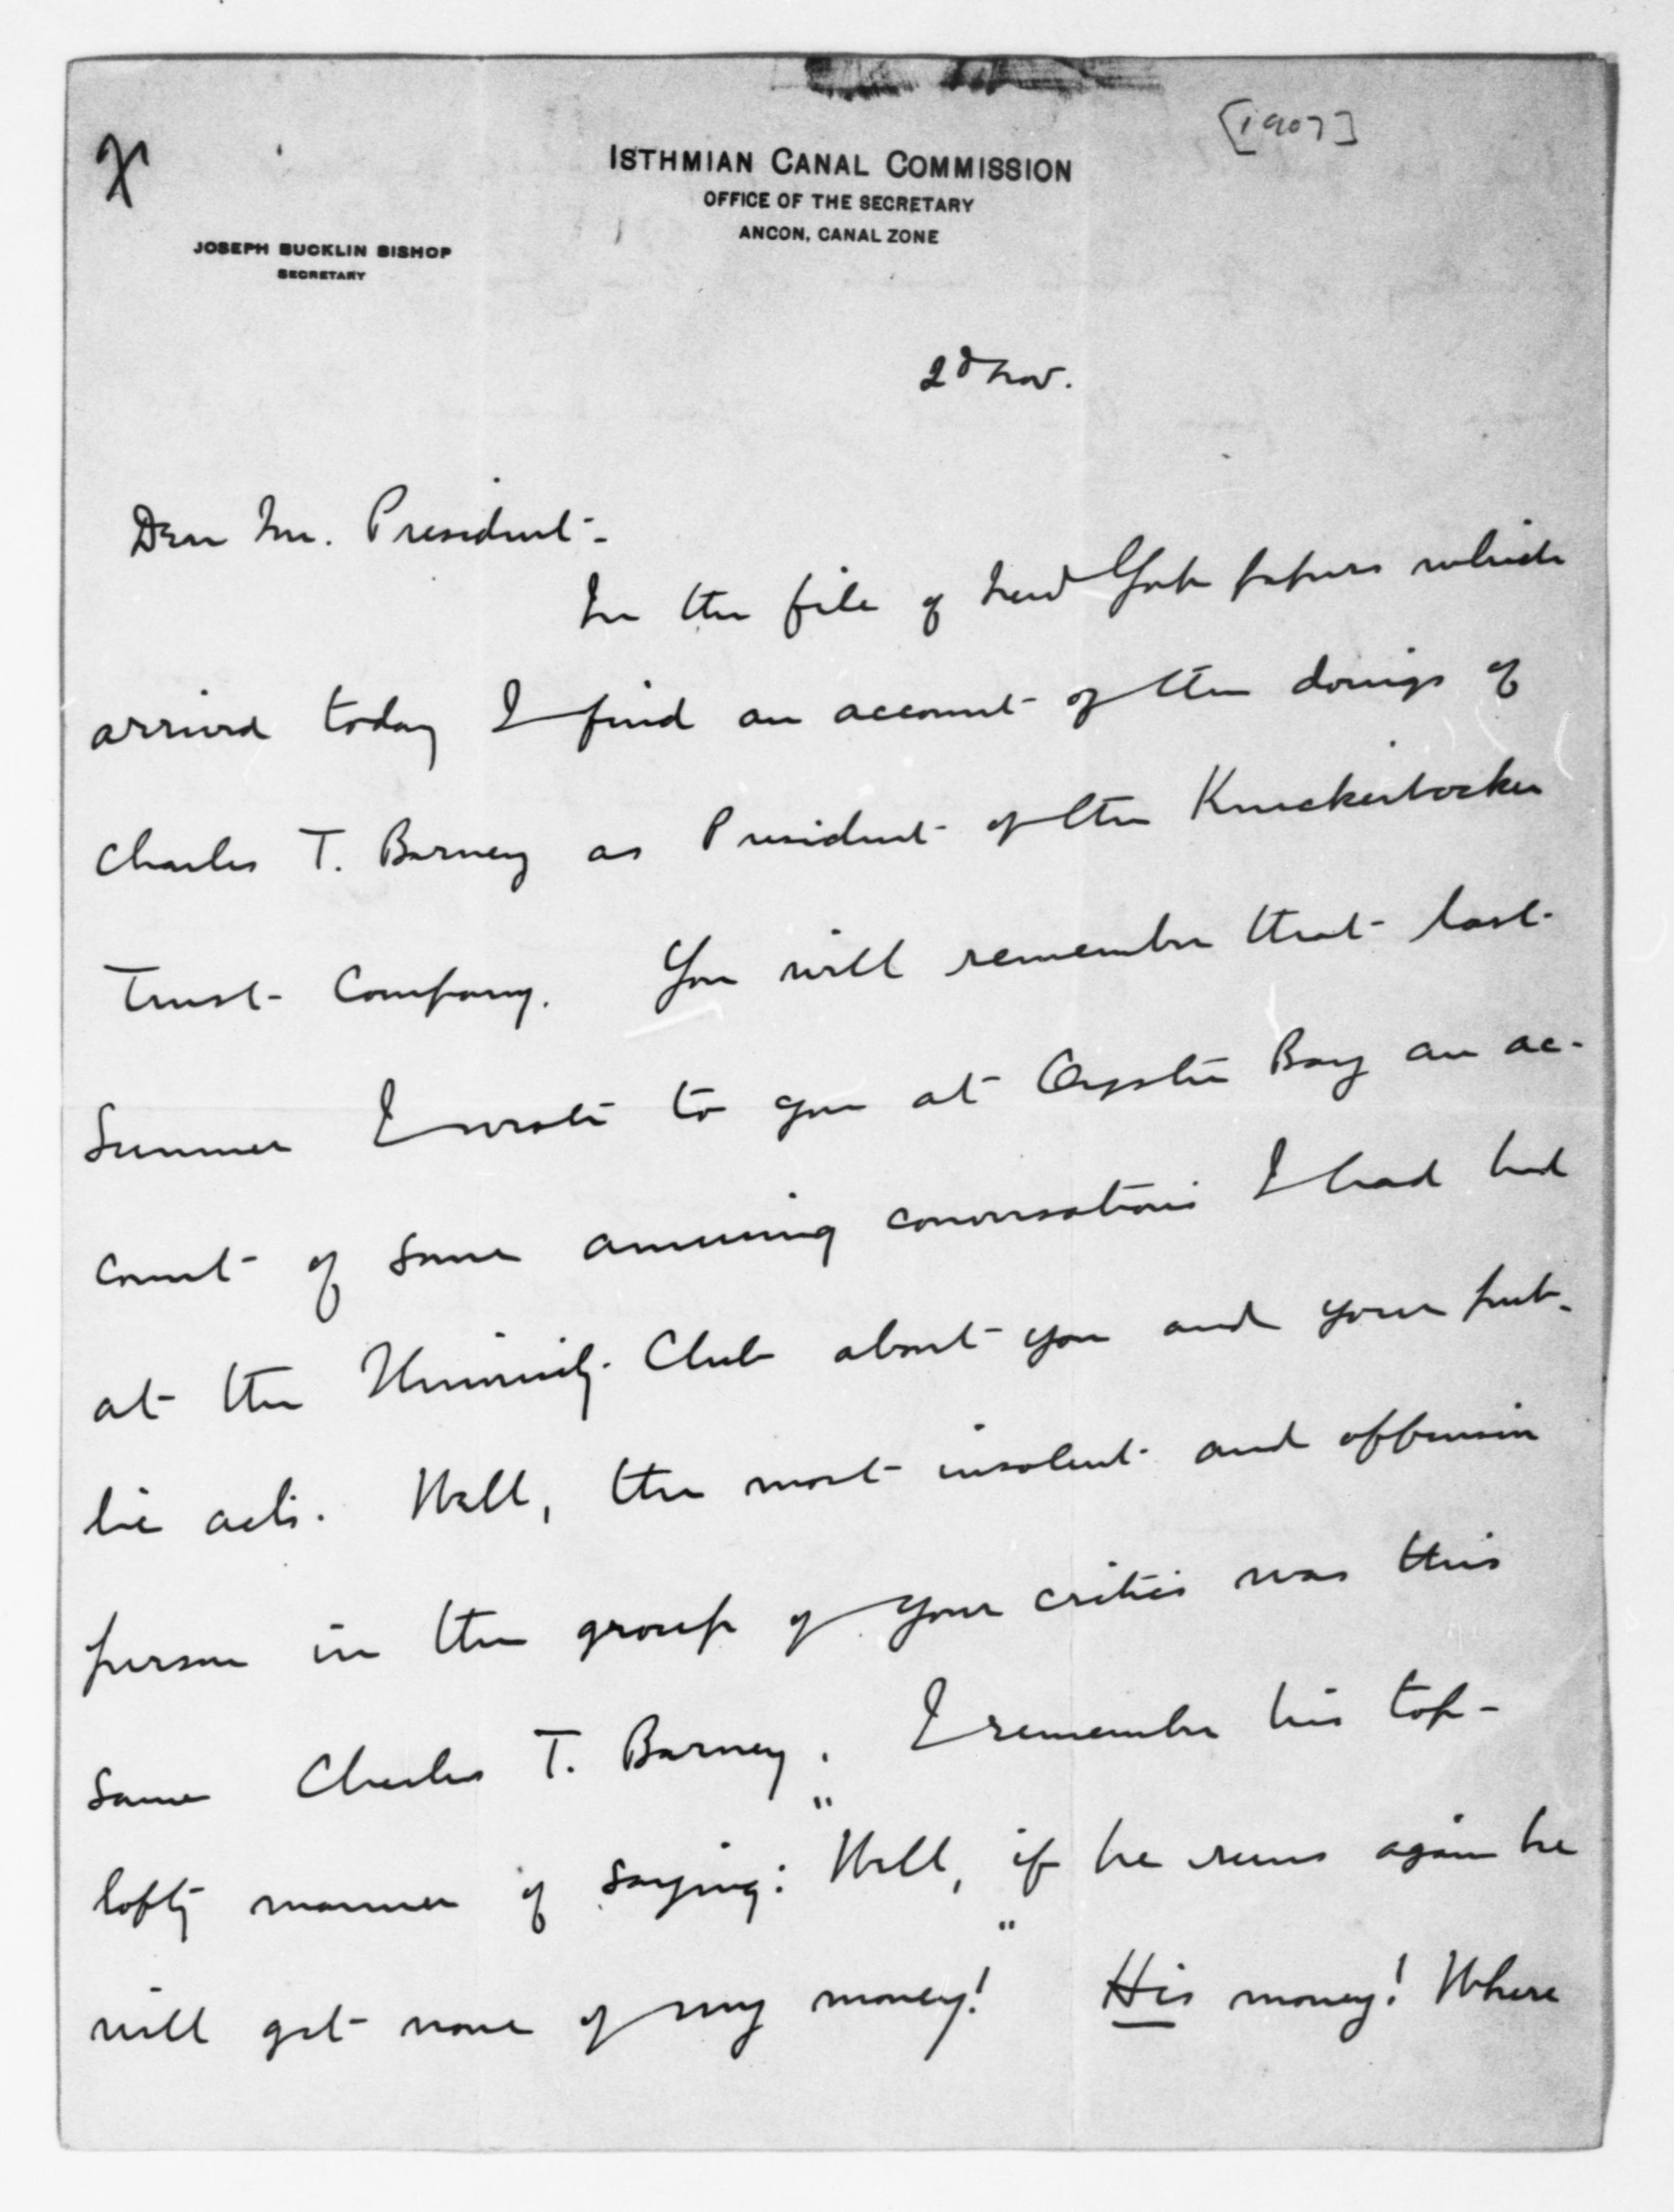 [1907]
ISTHMIAN CANAL COMMISSION
OFFICE OF THE SECRETARY
ANCON, CANAL ZONE
JOSEPH BUCKLIN BISHOP
SECRETARY
2d Nov.
Dear Mr. President-
In the file of New York papers which
arrived today I find an account of the doings of
Charles T. Barney as President of the Knickerbocker
Trust Company. You will remember that last
Summer I wrote to you at Oyster Bay an ac-
count of some amusing conversations I had had
at the University Club about you and your pub-
lic acts. Well, the most insolent and offensive
person in the group of your critics was this
same Charles T. Barney. I remember his top-
lofty manner of saying: "Well, if he runs again he
will get none of my money!" His money! Where